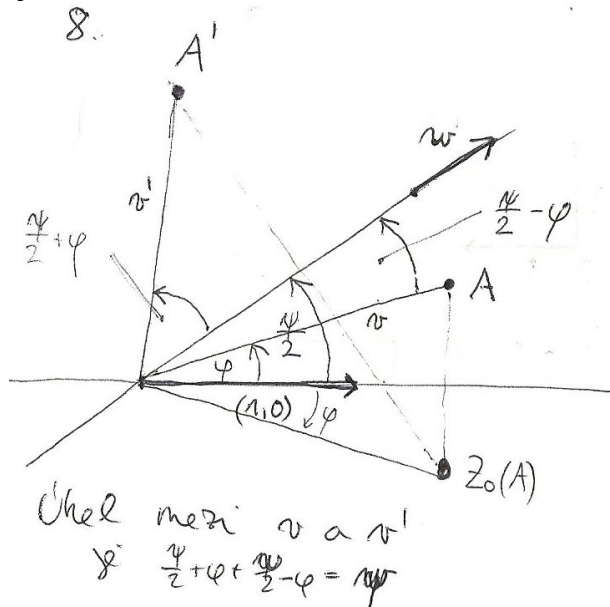 8.
A'
w
v'
ψ/2 - φ
ψ/2 + φ
A
v
ψ/2
φ
(1,0)
φ
Z₀(A)
Úhel mezi v a v'
je ψ/2 + φ + ψ/2 - φ = ψ